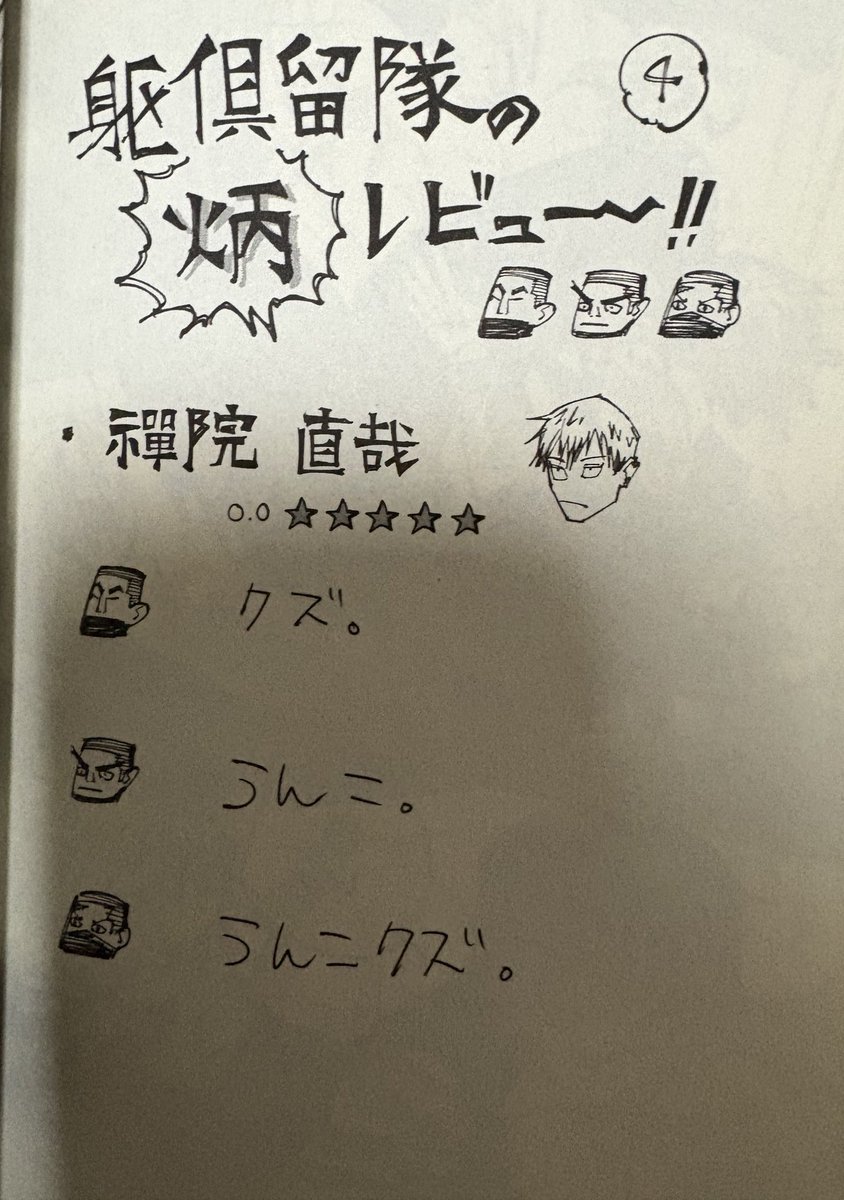 躯倶留隊の ④
炳 レビュー!!
・禪院 直哉
0.0 ★★★★★
クズ。
うんこ。
うんこクズ。